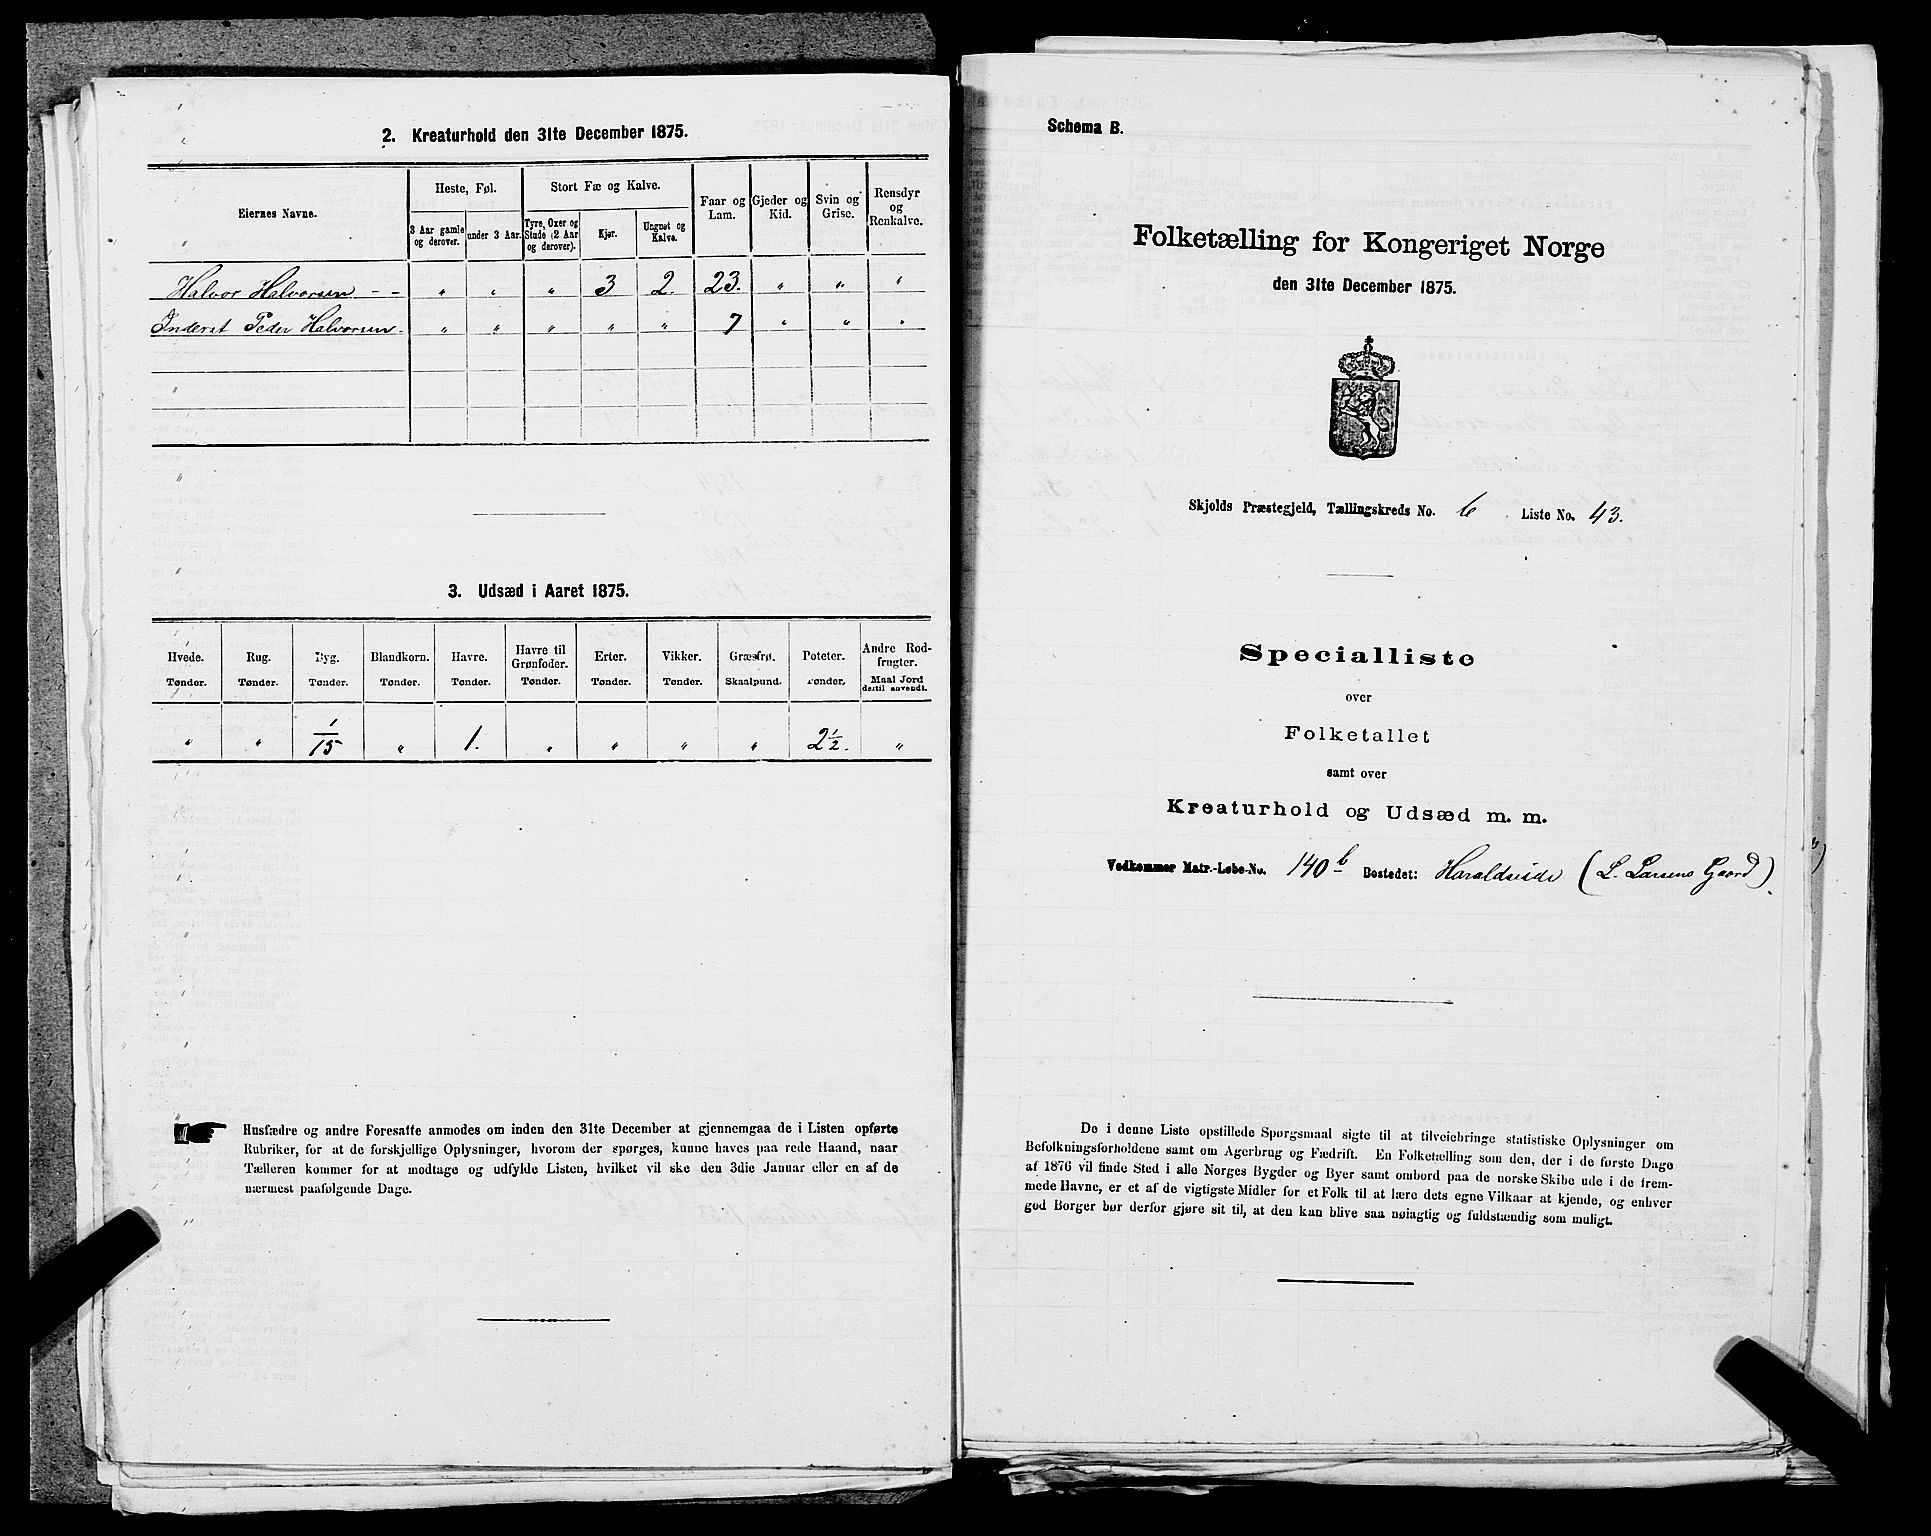 2. Kreaturhold den 31te December 1875.
Eiernes Navne.
Heste, Føl.
Stort Fæ og Kalve.
Faar og Lam.
Gjeder og Kid.
Svin og Grise.
Rensdyr og Renkalve.
3 Aar gamle og derover.
under 3 Aar.
Tyre, Oxer og Stude (2 Aar og derover).
Kjør.
Ungnøt og Kalve.
Halvor Halvorsen - - " " " 3 2. 23. " " "
Inderst Peder Halvorsen " " " " " 7 " " "
3. Udsæd i Aaret 1875.
Hvede. Rug. Byg. Blandkorn. Havre. Havre til Grønfoder. Erter. Vikker. Græsfrø. Poteter. Andre Rodfrugter.
Tønder. Tønder. Tønder. Tønder. Tønder. Tønder. Tønder. Tønder. Skaalpund. Tønder. Maal Jord dertil anvendt.
" " 1/15 " 1. " " " " 2 1/2. "
Husfædre og andre Foresatte anmodes om inden den 31te December at gjennemgaa de i Listen opførte
Rubriker, for at de forskjellige Oplysninger, hvorom der spørges, kunne haves paa rede Haand, naar
Tælleren kommer for at modtage og udfylde Listen, hvilket vil ske den 3die Januar eller en af de
nærmest paafølgende Dage.
Schema B.
Folketælling for Kongeriget Norge
den 31te December 1875.
Skjolds Præstegjeld, Tællingskreds No. 6 Liste No. 43.
Specialliste
over
Folketallet
samt over
Kreaturhold og Udsæd m. m.
Vedkommer Matr.-Løbe-No. 140 b Bostedet: Haraldseide (L. Larsens Gaard).
De i denne Liste opstillede Spørgsmaal sigte til at tilveiebringe statistiske Oplysninger om
Befolkningsforholdene samt om Agerbrug og Fædrift. En Folketælling som den, der i de første Dage
af 1876 vil finde Sted i alle Norges Bygder og Byer samt ombord paa de norske Skibe ude i de frem-
mede Havne, er et af de vigtigste Midler for et Folk til at lære dets egne Vilkaar at kjende, og enhver
god Borger bør derfor gjøre sit til, at den kan blive saa nøiagtig og fuldstændig som muligt.